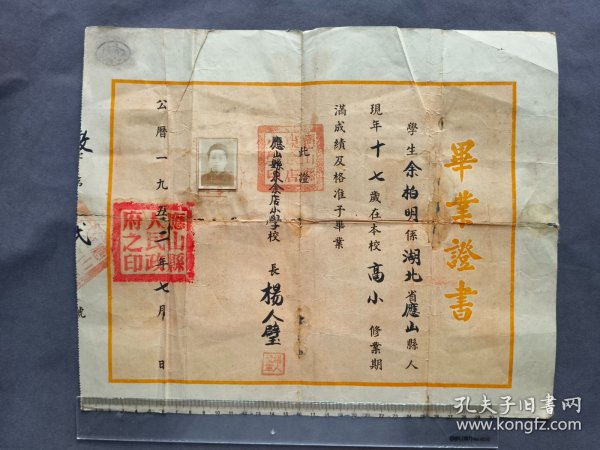 畢業證書
學生余柏明係湖北省應山縣人
現年十七歲在本校高小修業期
滿成績及格准予畢業
此證
應山縣東余店小學校長楊人璧
公曆一九五二年七月 日
應山縣人民政府之印
號
孔夫子旧书网
www.kongfz.com